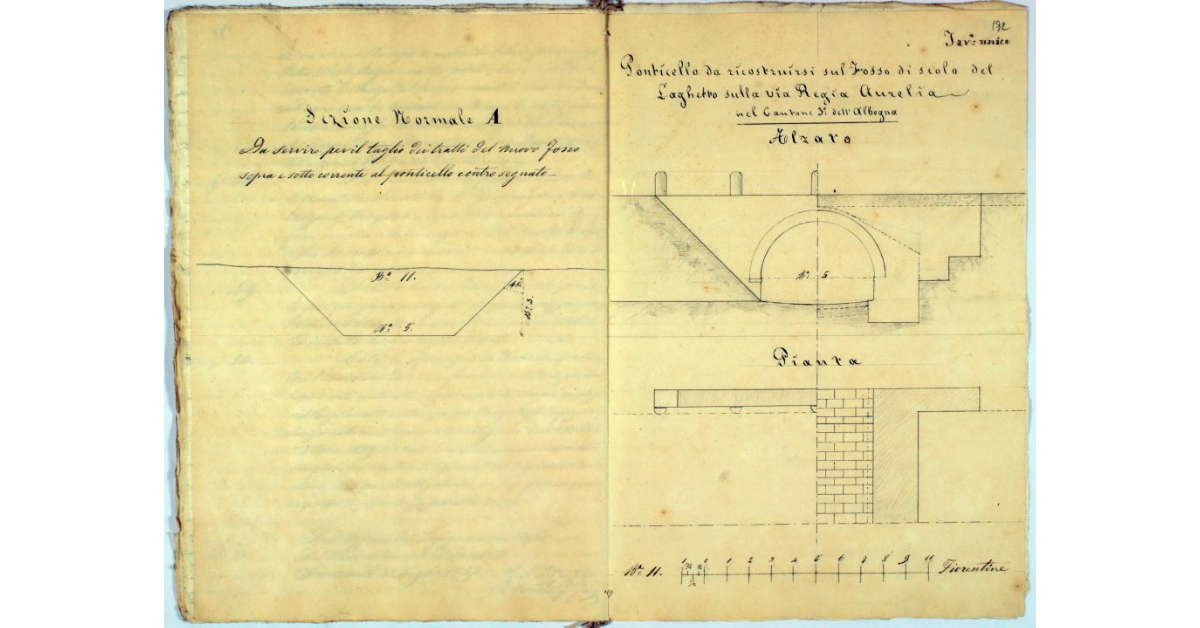 Sezione Normale A
Da servire per il taglio dei tratti del nuovo fosso
sopra e sotto corrente al ponticello controsegnato_
Bª 11.
Bª 5.
45°
Bª 3.
192
Tavª unica
Ponticello da ricostruirsi sul Fosso di scolo del
Laghetto sulla via Regia Aurelia
nel Cantone 3º dell'Albegna
Alzato
Bª 5
Pianta
Bª 11. 1 0 1 2 3 4 5 6 7 8 9 10 Fiorentine